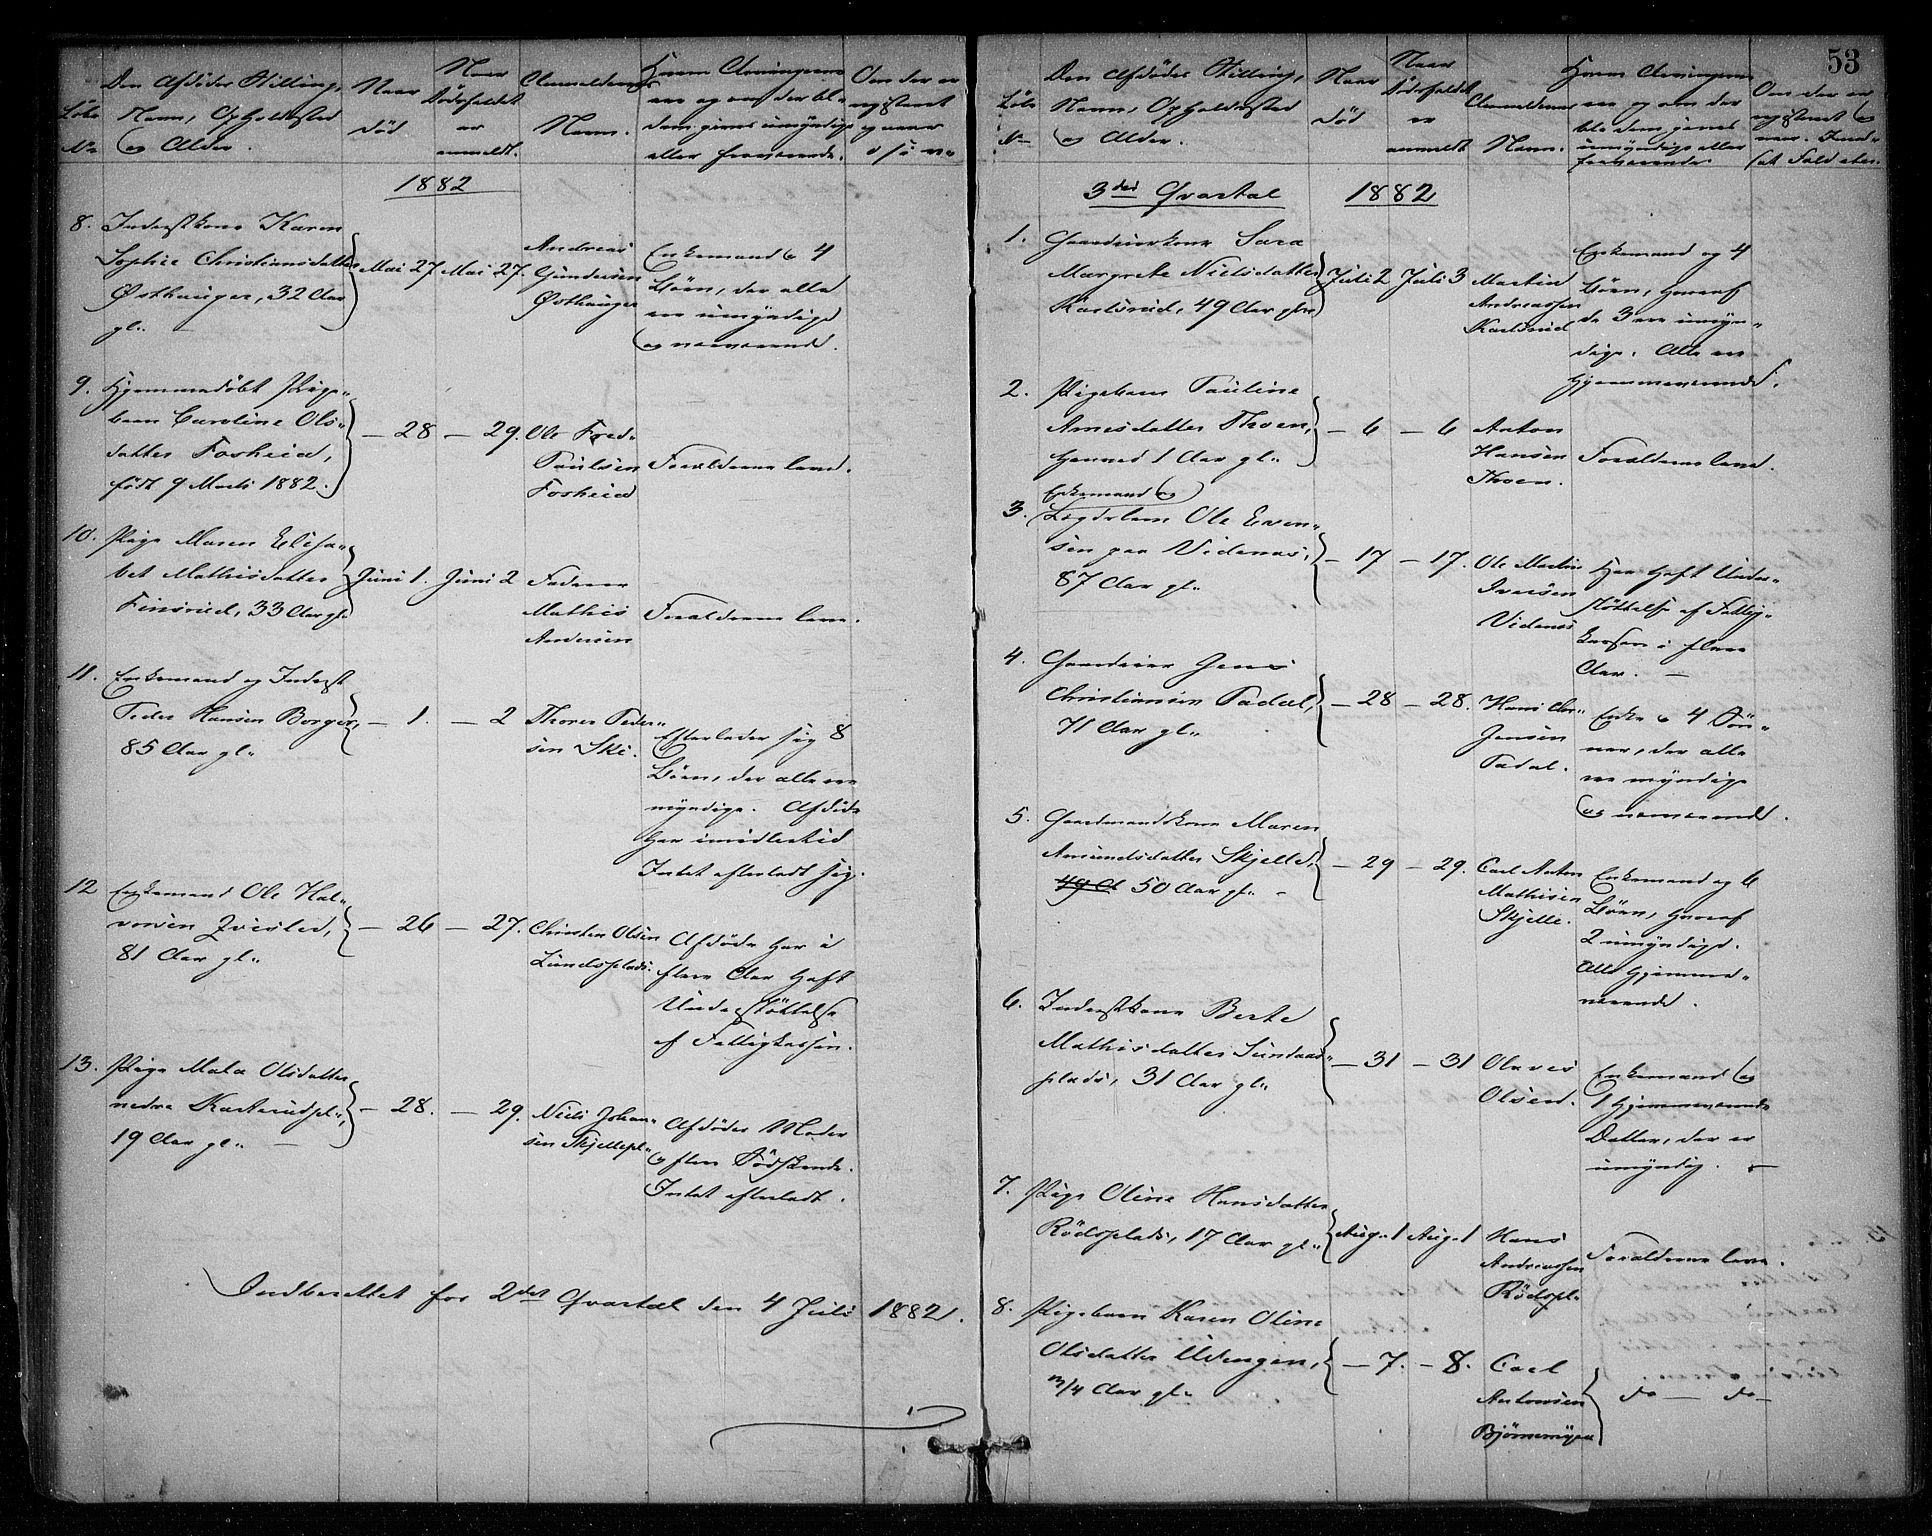 53
Løbe
No
Den Afdödes Stilling,
Navn, Opholdssted
og Alder.
Naar
död
Naar
Dödsfaldet
er
anmeldt.
Anmelderens
Navn.
Hvem Arvingerne
ere og om der bl.
dem gives umyndige
eller fraværende.
Om der er
registeret
og naar
1882
8. Inderstkone Karen
Sophie Christiansdatter
Østhauger, 32 Aar
gl.
Mai 27 Mai 27.
Andreas
Gundersen
Østhauger
Enkemand og 4
Börn, der alle
ere umyndige
og nærværende.
9. Hjemmedöbt Pige-
barn Caroline Ols-
datter Fosheid,
födt 9 Marts 1882.
— 28 — 29.
Ole Fred-
Paulsen
Fosheid
Forældrene leve.
10. Pige Maren Elisa-
bet Mathisdatter
Finsrud, 33 Aar gl.
Juni 1. Juni 2
Faderen
Mathis
Andersen
Forældrene leve.
11. Enkemand og Inderst
Peder Hansen Borger,
85 Aar gl.
— 1. — 2
Thorer Peder-
sen Ski.
Efterlader sig 8
Börn, der alle ere
myndige. Afdöde
har imidlertid
Intet efterladt sig.
12 Enkemand Ole Hal-
vorsen
81 Aar gl.
— 26 — 27.
Christen Olsen
Lundsplads.
Afdöde har i
flere Aar havt
Understöttelse
af Fattigkassen.
13. Pige Mala Olsdatter
nedre Karterudpl.,
19 Aar gl. —
— 28. — 29.
Niels Johan-
sen Skjellepl.
Afdödes Moder
og flere Södskende.
Intet efterladt.
Indberettet for 2det Qvartal den 4 Juli 1882.
Løbe
No
Den Afdödes Stilling,
Navn, Opholdssted
og Alder.
Naar
död
Naar
Dödsfaldet
er
anmeldt
Anmelderens
Navn.
Hvem Arvingerne
ere og om der
bla dem gives
umyndige eller
fraværende
Om der er
registeret og
naar.
3die Qvartal 1882
1. Gaardeierkone Sara
Margrethe Nielsdatter
Karlsrud, 49 Aar gl.
Juli 2 Juli 3
Martin
Andreassen
Karlsrud
Enkemand og 4
Börn, hvoraf
de 3 ere umyn-
dige. Alle ere
hjemmeværende.
2. Pigebarn Pauline
Arnesdatter Thoen,
henved 1 Aar gl.
— 6 — 6
Anton
Hansen
Thoen.
Forældrene leve.
Enkemand og
3. Lægdslem Ole Even-
sen paa Videnæs,
87 Aar gl.
— 17 — 17.
Ole Martin
Iversen
Videnæs
Har havt Under-
støttelse af Fattig-
kassen i flere
Aar. —
4. Gaardeier Jens
Christiansen Tadal,
71 Aar gl.
— 28 — 28.
Hans Chr.
Jensen
Tadal.
Enke og 4 Søn-
ner, der alle
ere myndige
og nærværende.
5. Gaardmandskone Maren
Amundsdatter Skjelle,
49 A 50 Aar gl. —
— 29 — 29.
Carl Anton
Mathisen
Skjelle.
Enkemand og 6
Börn, hvoraf
2 umyndige.
Alle hjemme-
værende.
6. Inderstkone Berte
Mathisdatter Sundaas-
plads, 31 Aar gl.
— 31 — 31
Olaves
Olsen.
Enkemand og
1 hjemmeværende
Datter, der er
umyndig. —
7. Pige Oline Hansdatter
Rödsplads, 17 Aar gl.
Aug. 1 Aug. 1
Hans
Andreassen
Rödspl.
Forældrene leve.
8. Pigebarn Karen Oline
Olsdatter Udengen,
3/4 Aar gl.
— 7. — 8.
Carl
Antonsen
Bjørnemyra
do — do —